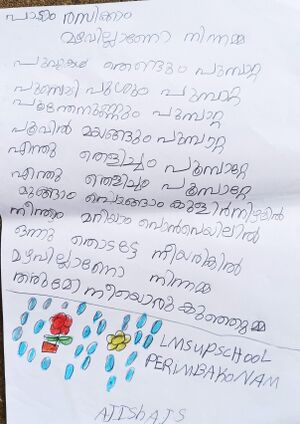 പാടാം രസിക്കാം
മഴവില്ലാണോ നിന്നമ്മ
പൂവുകൾ തെണ്ടും പൂമ്പാറ്റ
പൂമ്പൊടി പൂശും പൂമ്പാറ്റ
പൂന്തേനുണ്ണും പൂമ്പാറ്റ
പൂവിൽ മയങ്ങും പൂമ്പാറ്റ
എന്തു തെളിച്ചം പൂമ്പാറ്റേ
എന്തു തെളിച്ചം പൂമ്പാറ്റേ
മുങ്ങാം പൊങ്ങാം കുളിർനിഴലിൽ
നീന്താം മറിയാം പൊൻവെയിലിൽ
ഒന്നു തൊടട്ടേ നീയരികിൽ
മഴവില്ലാണോ നിന്നമ്മ
തരുമോ നീയൊരു കുഞ്ഞുമ്മ
LMSUPSCHOOL
PERIMBAKONAM
AJISHAJS